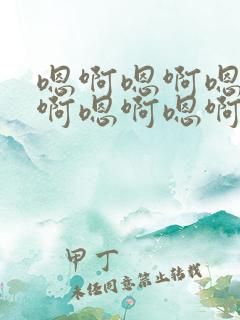 嗯啊嗯啊嗯
啊嗯啊嗯啊
甲丁
未经同意禁止转载